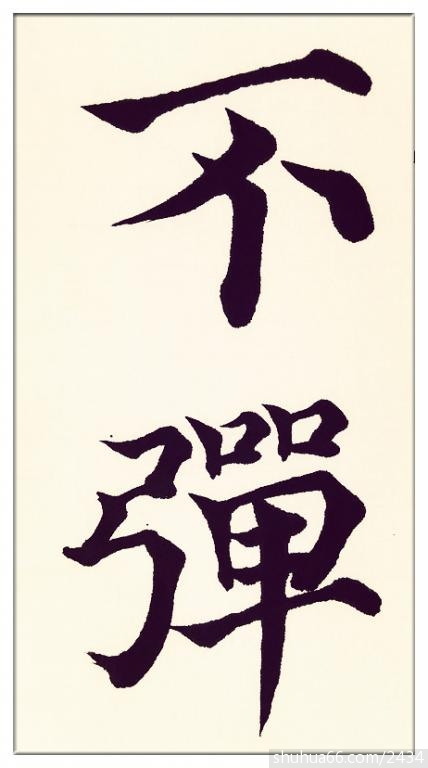 不彈
shuhua66.com/2434